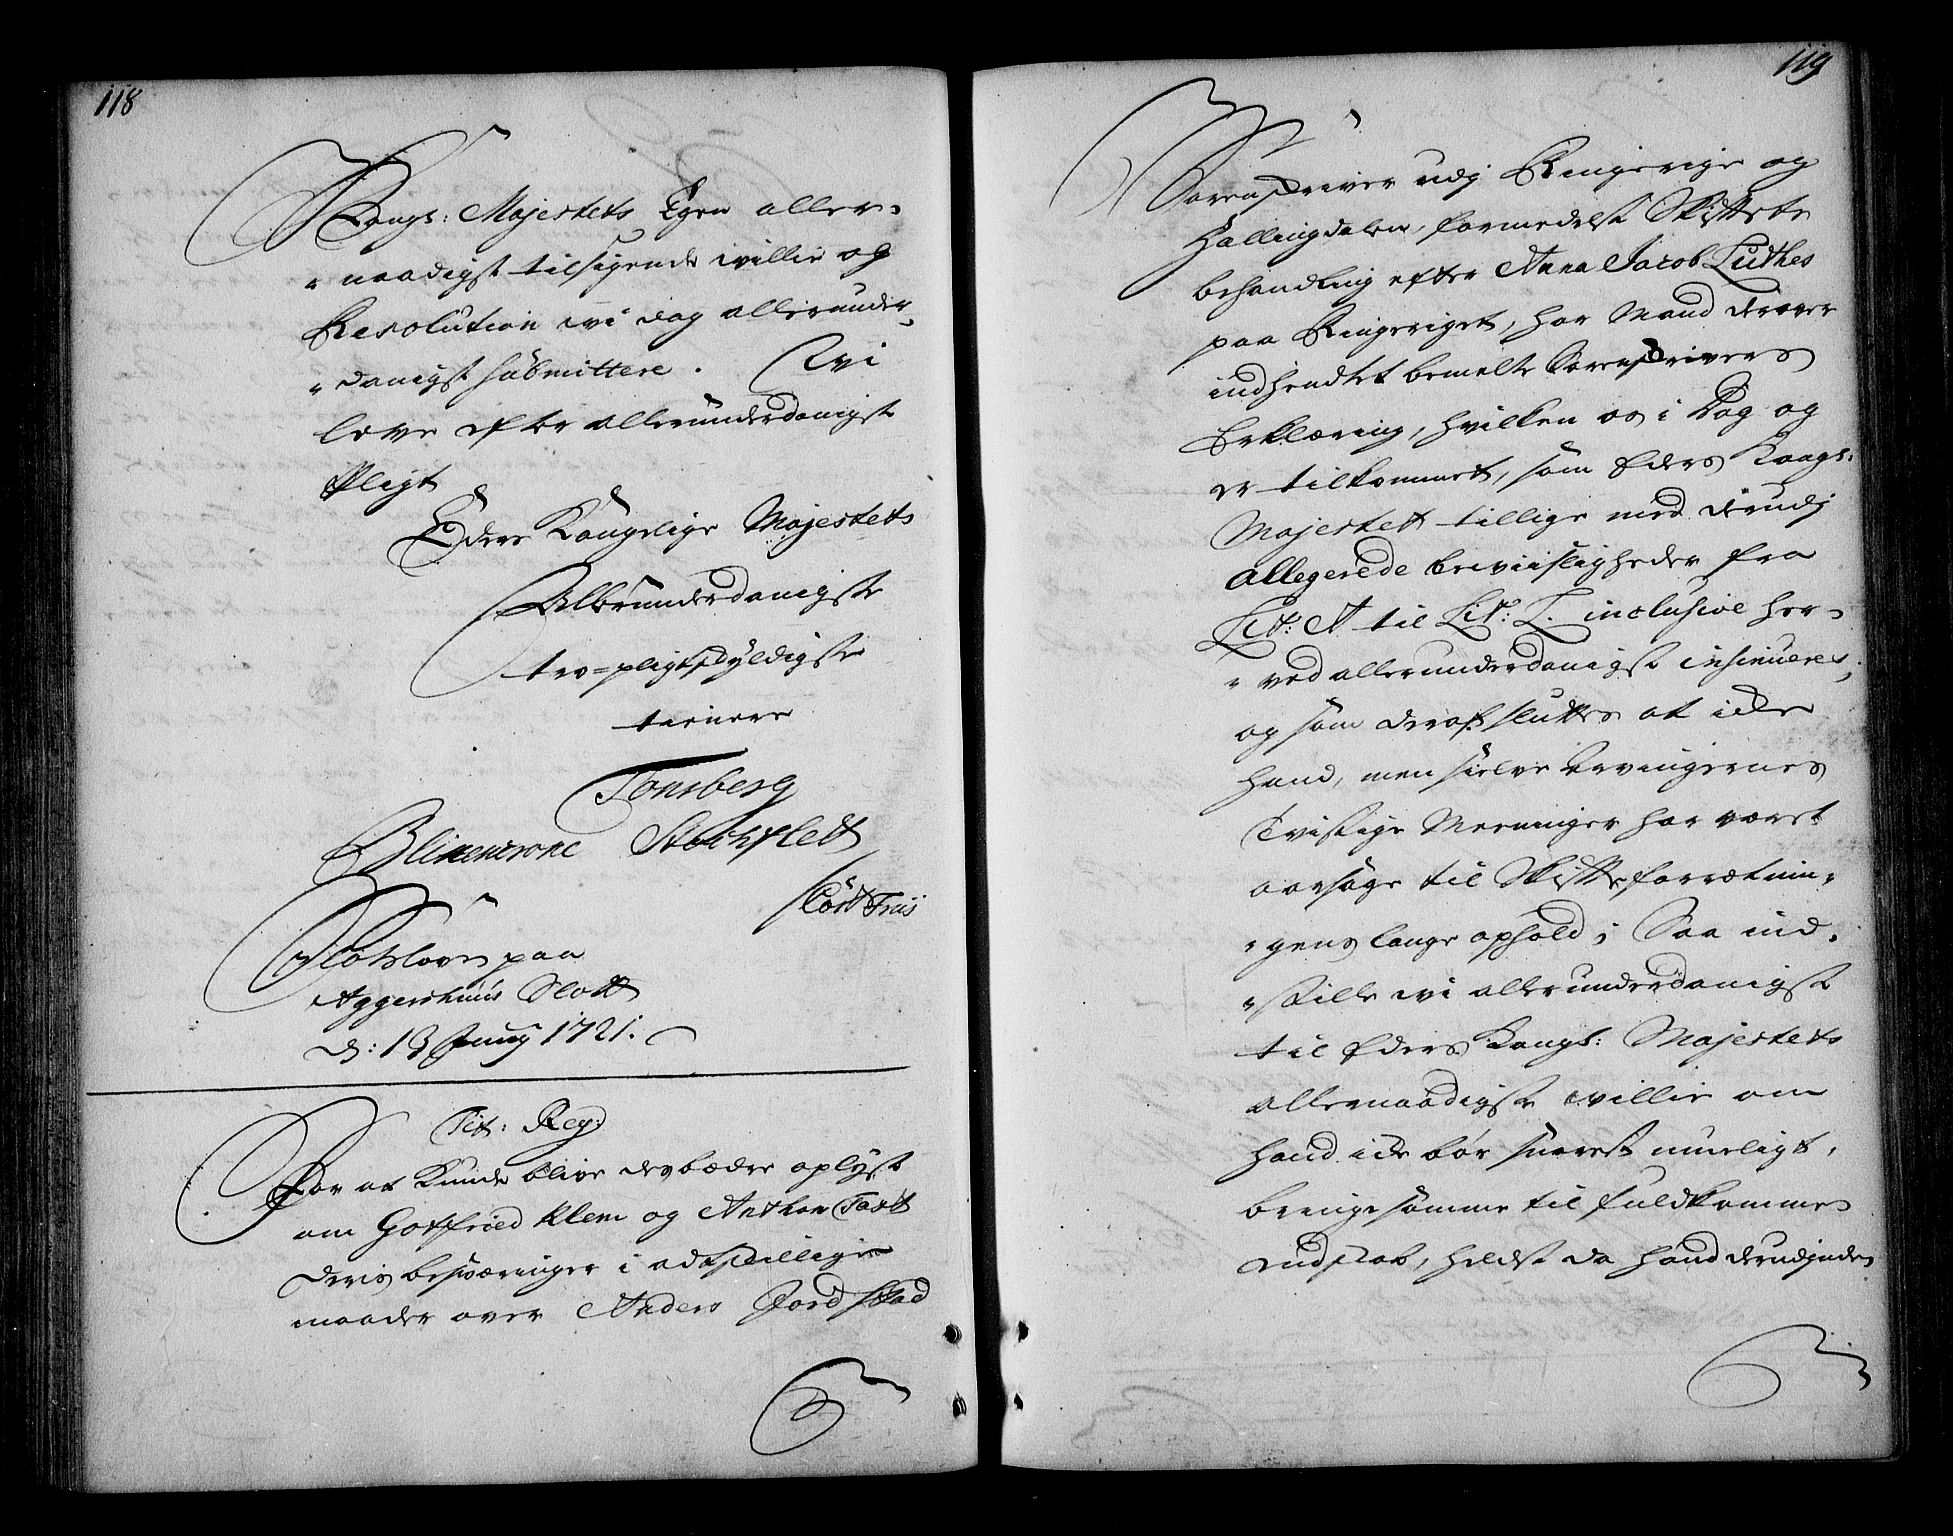 118
Kongl: Majestets Egen aller-
naadigst tilsigende willie og
Resolution wi dag allerunder-
danigst submittere. Wi
leve efter allerunderdanigst
Pligt
Eders Kongelige Majestets
Allerunderdanigste
troe=pligtskyldigste
tienere
Tonsberg
Blixencrone Stockfleth
Cort Friis
Slotsloven paa
Aggershuus Slott
d: 13 Junij 1721.
Tit: Reg:
For at kunde blive des bædre oplyst
om Gotfried Klem og Anthon Tost
deris besværinger i adskillige
maader over Anders Jordskad
119
Sorenskriver udj Ringerige og
Hallingdalen, formedelst Skiftets
behandling efter Anna Jacob Luthes
paa Ringeriget, har Mand derover
indhendtet bemelte Sorenskrivers
Erklæring, hvilken os i Dag og
er tilkommet, som Eders Kongl:
Majestett tillige med derudj
allegerede beviisligheder fra
Lit: A til Lit: L. inclusive her-
ved allerunderdanigst insinueres,
og som deraf sluttes at icke
hand, men sielve Arvingernes
Tvistige Meeninger har været
aarsage til Skifteforretnin-
gens lange ophold; Saa ind-
stille wi allerunderdanigst
til Eders Kongl: Majestets
allernaadigste willie om
hand icke bør snarest mueligt,
bringe samme til fuldkommen
Endskab, heldst da hand derudjnden